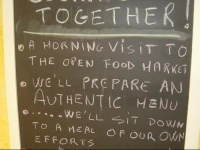 TOGETHER!
A MORNING VISIT TO
THE OPEN FOOD MARKET
WE'LL PREPARE AN
AUTHENTIC MENU
......WE'LL SIT DOWN
TO A MEAL OF OUR OWN
EFFORTS